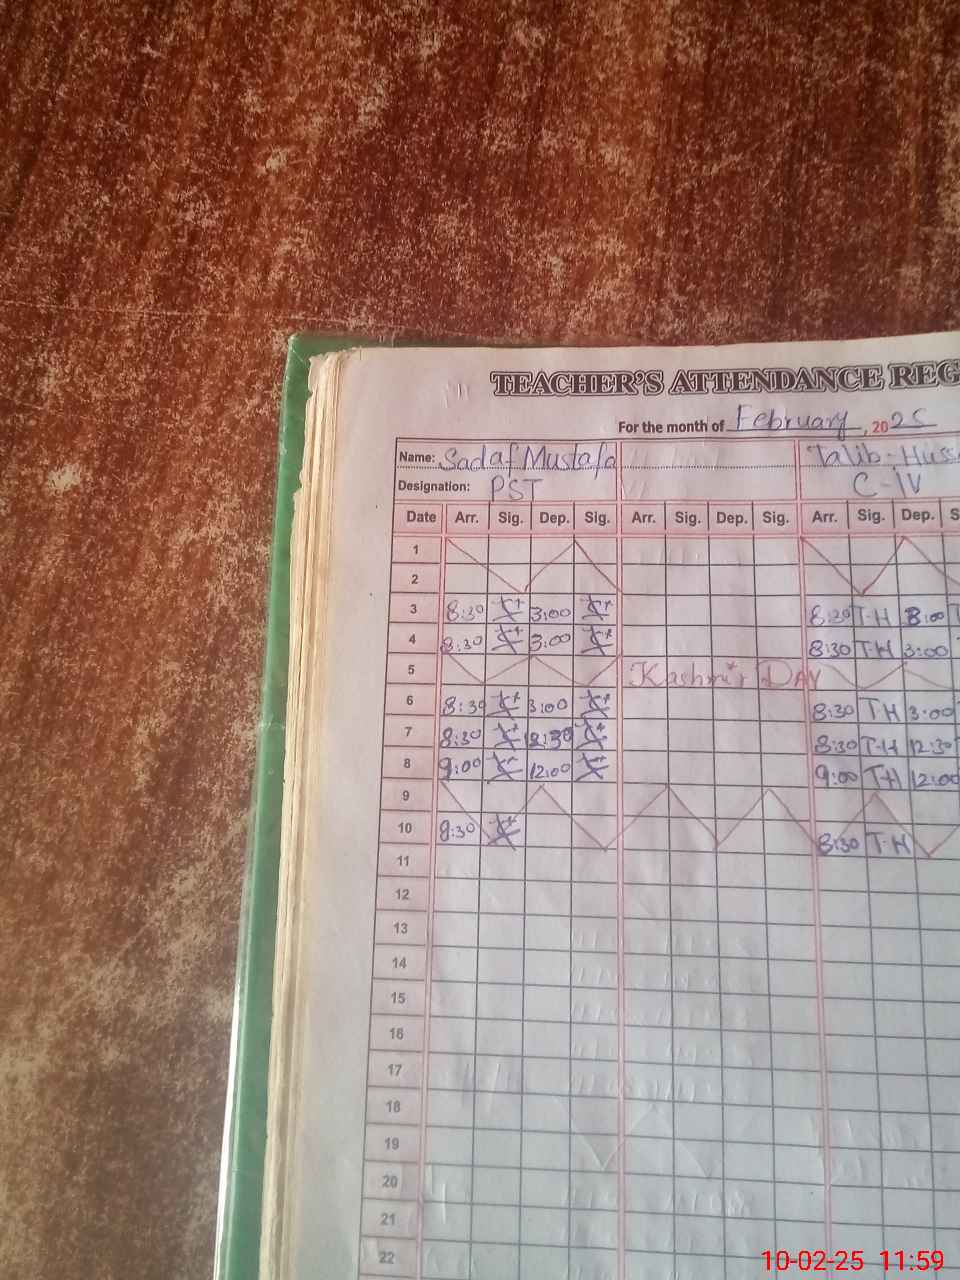 TEACHER'S ATTENDANCE REG
For the month of February, 2025
Name: Sadaf Mustafa Talib-Huss
Designation: PST C-IV
Date Arr. Sig. Dep. Sig. Arr. Sig. Dep. Sig. Arr. Sig. Dep. S
1
2
3 8:30 3:00 8:30 T-H 3:00 T
4 8:30 3:00 8:30 T-H 3:00
5 Kashmir DAY
6 8:30 3:00 8:30 T-H 3:00
7 8:30 12:30 8:30 T-H 12:30
8 9:00 12:00 9:00 T-H 12:00
9
10 8:30 8:30 T-H
11
12
13
14
15
16
17
18
19
20
21
22
10-02-25 11:59